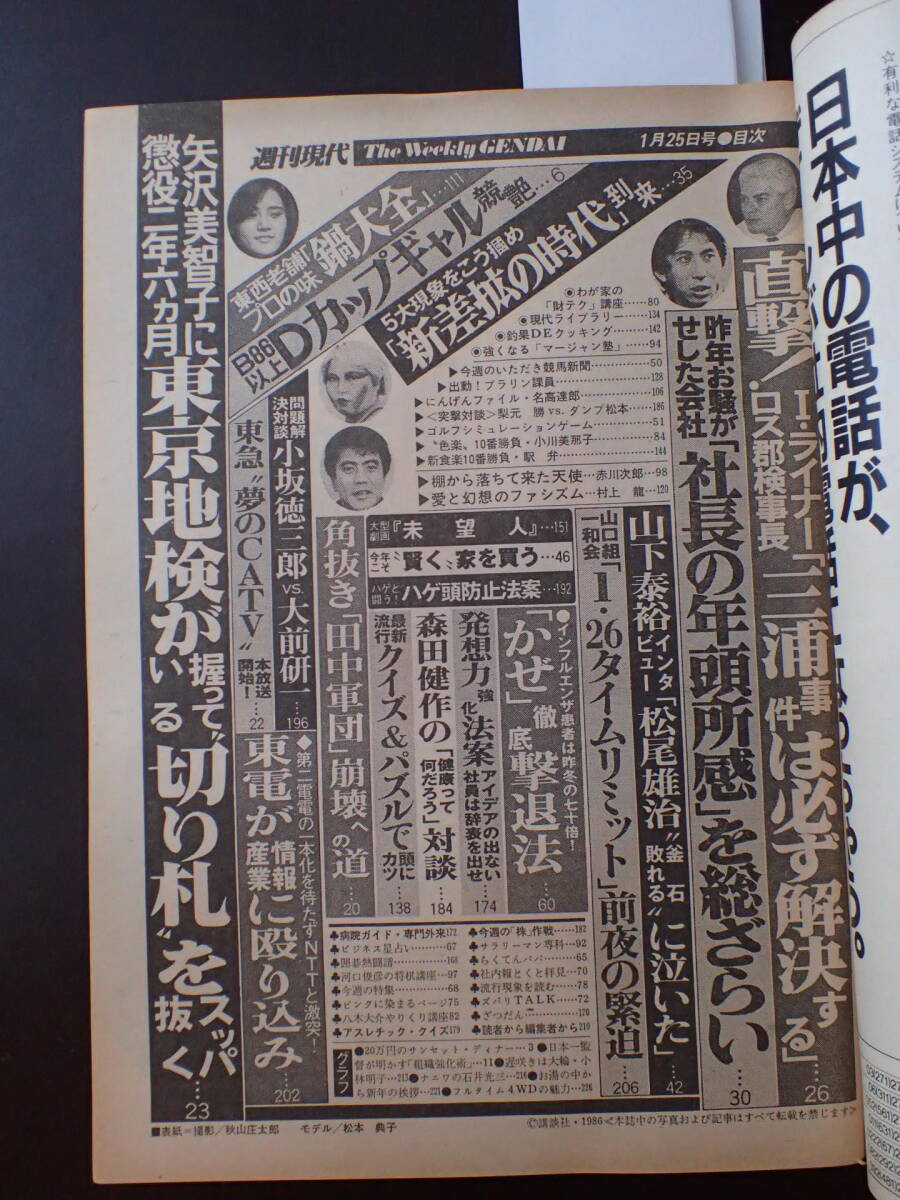 週刊現代 The Weekly GENDAI 1月25日号●目次
直撃!I・ライナー ロス郡検事長「三浦事件は必ず解決する」…26
昨年お騒がせした会社「社長の年頭所感」を総ざらい…30
山下泰裕インタビュー「松尾雄治〝釜石敗れる〟に泣いた」…42
山口組一和会「1・26タイムリミット」前夜の緊迫…206
5大現象をこう掴め「新差拡の時代」到来…35
B86以上Dカップギャル競艶…6
東西老舗プロの味「鍋大全」…111
●わが家の「財テク」講座……80
●現代ライブラリー……134
●釣果DEクッキング……142
●強くなる「マージャン塾」……94
▶今週のいただき競馬新聞……50
▶出動!プラリン課員……128
▶にんげんファイル・名高達郎……106
▶<突撃対談>梨元 勝vs.ダンプ松本……186
▶ゴルフシミュレーションゲーム……51
▶〝色楽〟10番勝負・小川美那子……84
▶新食楽10番勝負・駅 弁……144
▶棚から落ちて来た天使…赤川次郎…98
▶愛と幻想のファシズム…村上 龍…120
大型劇画『未望人』…151
今年こそ〝賢く〟家を買う…46
ハゲと闘う!ハゲ頭防止法案…192
●インフルエンザ患者は昨冬の七十倍!
「かぜ」徹底撃退法…60
発想力強化法案 アイデアの出ない社員は辞表を出せ…174
森田健作の「健康って何だろう」対談…184
最新流行クイズ&パズルで頭にカツ…138
角抜き「田中軍団」崩壊への道…20
問題解決対談 小坂徳三郎vs.大前研一…196
東急〝夢のCATV〟本放送開始!…22
◆第二電電の一本化を待たずNTTと激突!
東電が情報産業に殴り込み…202
矢沢美智子に懲役二年六ヵ月 東京地検が握っている〝切り札〟をスッパ抜く…23
♣今週の「株」作戦……182
♣サラリーマン専科……92
♣らくてんパパ……65
♣社内報とくと拝見……70
♣流行現象を読む……78
♣ズバリTALK……72
♣ざつだん……170
♣読者から編集者から210
♣病院ガイド・専門外来172
♣ビジネス星占い……67
♣囲碁熱闘譜……168
♣河口俊彦の将棋講座…97
♣今週の特集……68
♣ピンクに染まるページ75
♣八木大介やりくり講座82
♣アスレチック・クイズ179
グラフ
●20万円のサンセット・ディナー…3●日本一監
督が明かす「組織強化術」…11●遅咲きは大輪・小
林明子…213●ナニワの石井光三…216●お湯の中か
ら新年の挨拶…221●フルタイム4WDの魅力…226
■表紙=撮影/秋山庄太郎 モデル/松本 典子
©講談社・1986<本誌中の写真および記事はすべて転載を禁じます>
日本中の電話が、